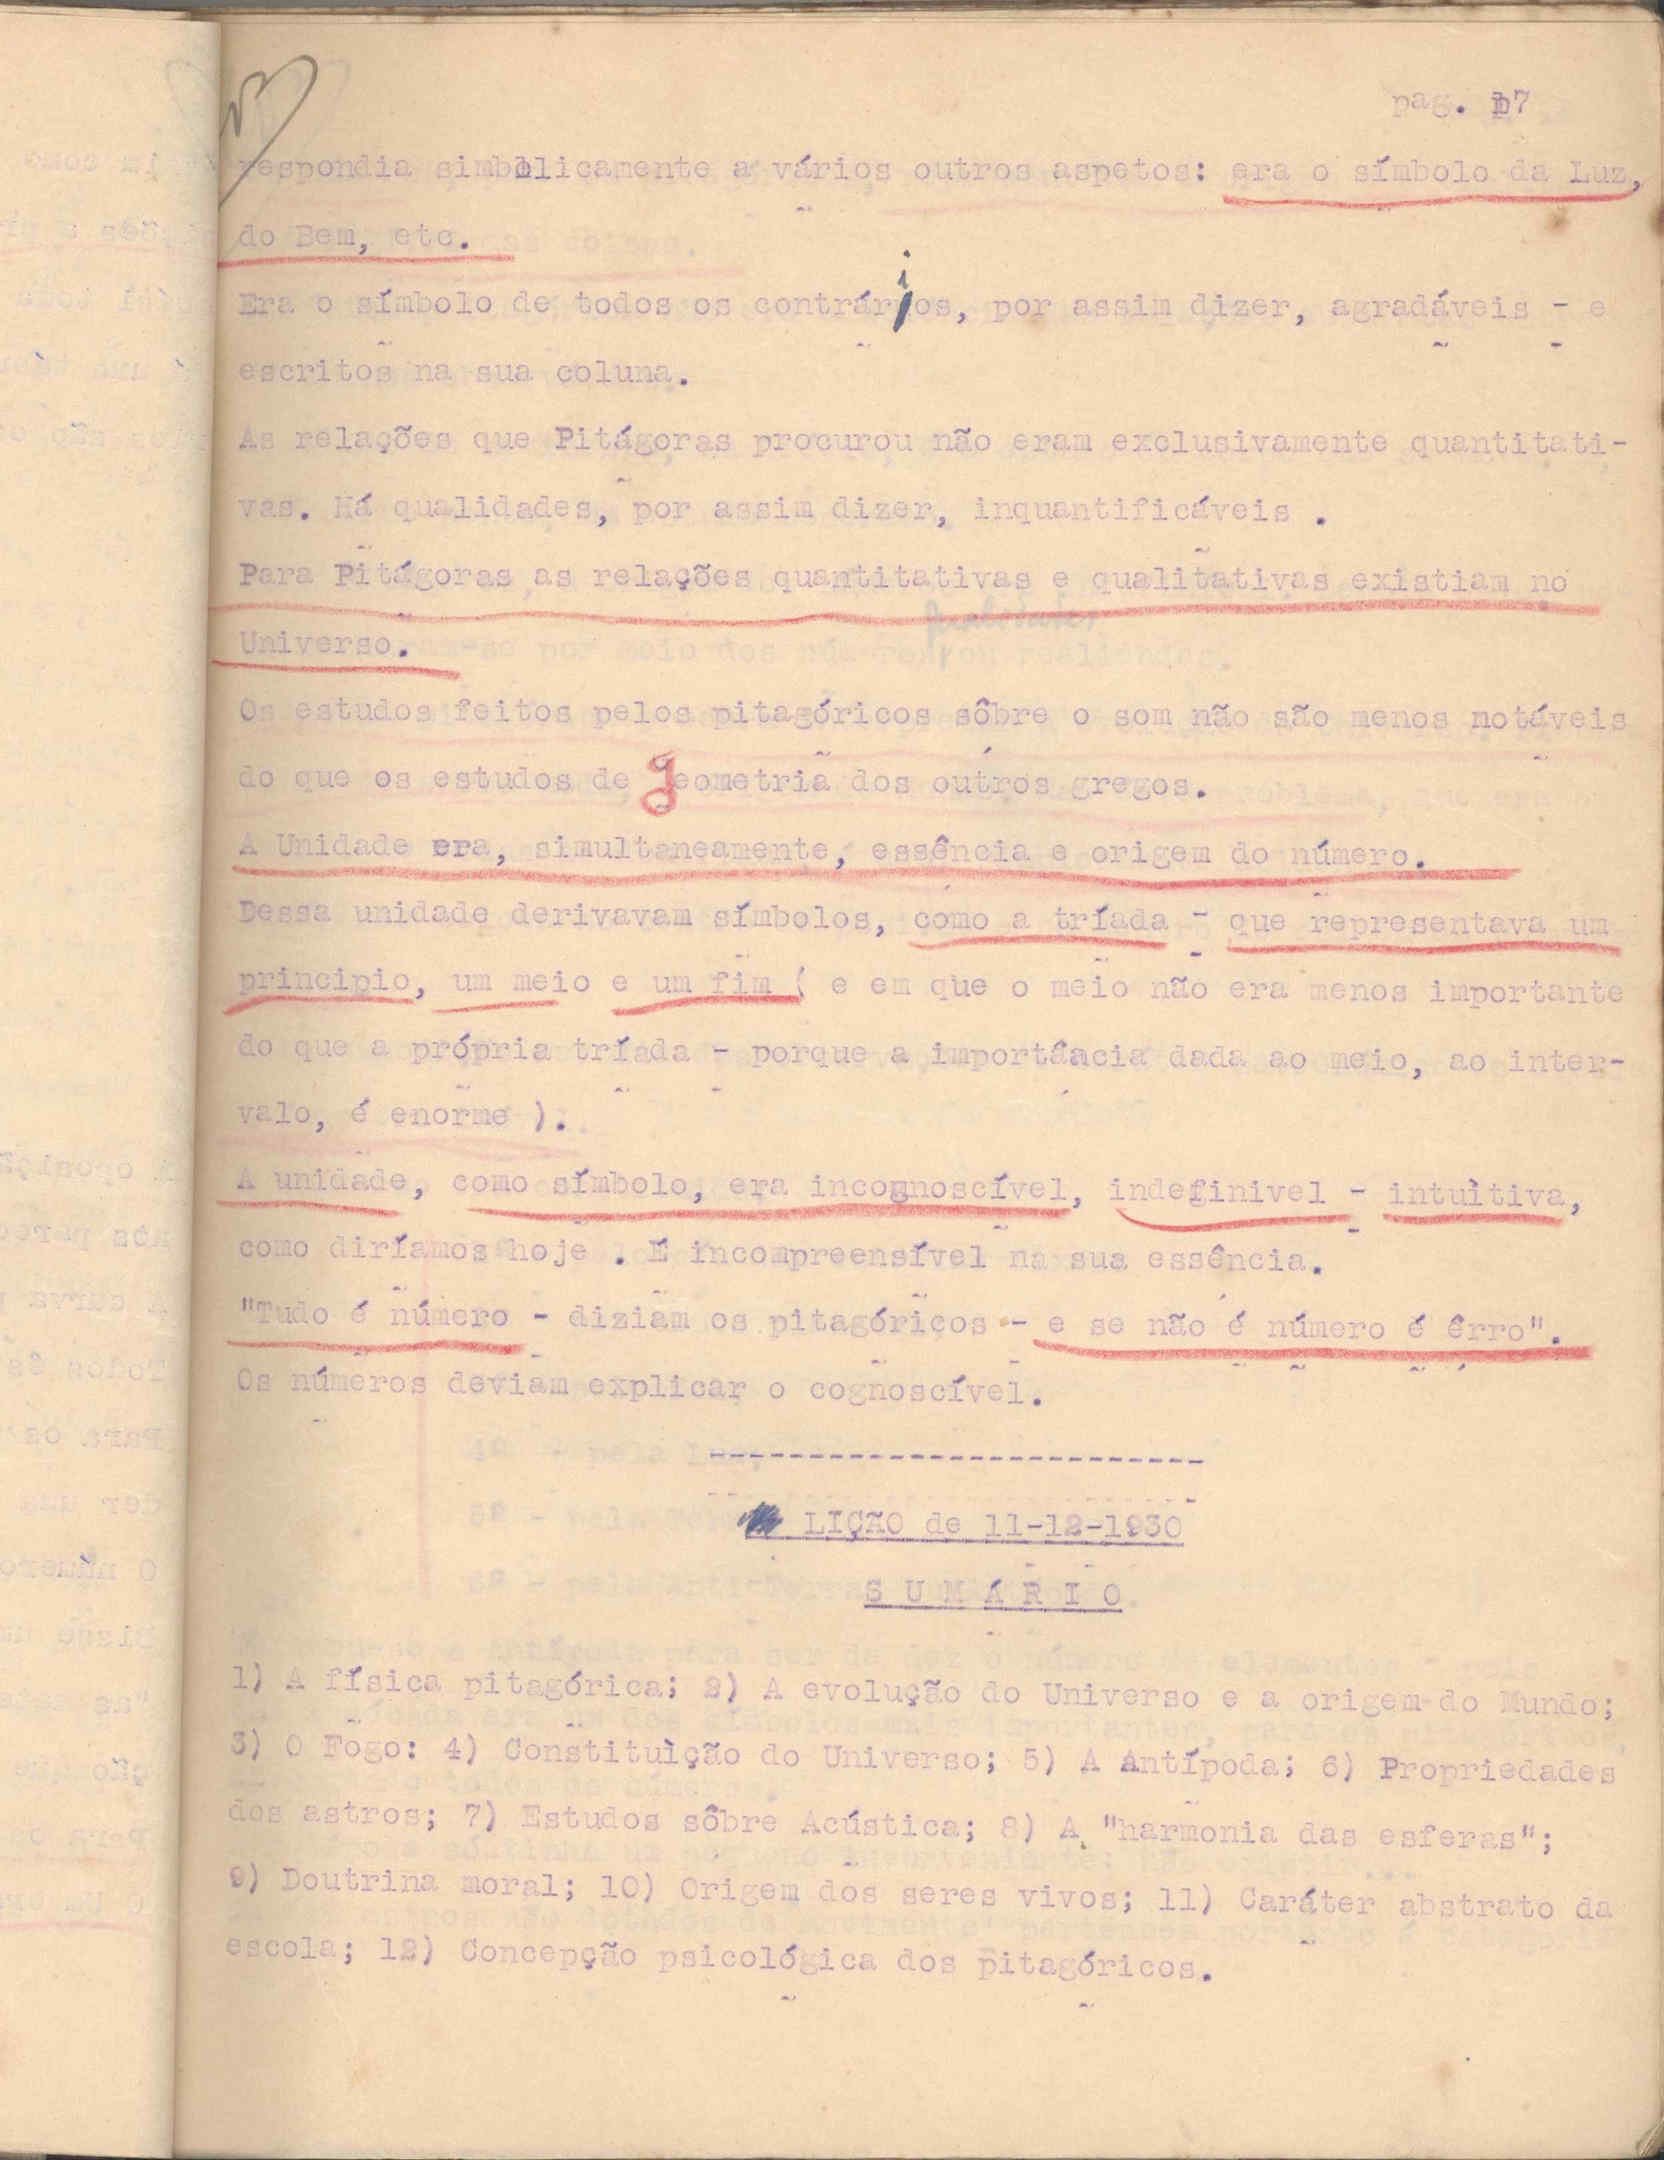 pag. 17
respondia simbolicamente a vários outros aspetos: era o símbolo da Luz,
do Bem, etc.
Era o símbolo de todos os contrários, por assim dizer, agradáveis - e
escritos na sua coluna.
As relações que Pitágoras procurou não eram exclusivamente quantitati-
vas. Há qualidades, por assim dizer, inquantificáveis .
Para Pitágoras as relações quantitativas e qualitativas existiam no
Universo.
Os estudos feitos pelos pitagóricos sôbre o som não são menos notáveis
do que os estudos de geometria dos outros gregos.
A Unidade era, simultaneamente, essência e origem do número.
Dessa unidade derivavam símbolos, como a tríada - que representava um
principio, um meio e um fim ( e em que o meio não era menos importante
do que a própria tríada - porque a importância dada ao meio, ao inter-
valo, é enorme ).
A unidade, como símbolo, era incognoscível, indefinivel - intuìtiva,
como diríamos hoje . É incompreensível na sua essência.
"Tudo é número - diziam os pitagóricos - e se não é número é êrro".
Os números deviam explicar o cognoscível.
LIÇÃO de 11-12-1930
S U M Á R I O
1) A física pitagórica; 2) A evolução do Universo e a origem do Mundo;
3) O Fogo: 4) Constituìção do Universo; 5) A Antípoda; 6) Propriedades
dos astros; 7) Estudos sôbre Acústica; 8) A "harmonia das esferas";
9) Doutrina moral; 10) Origem dos seres vivos; 11) Caráter abstrato da
escola; 12) Concepção psicológica dos pitagóricos.